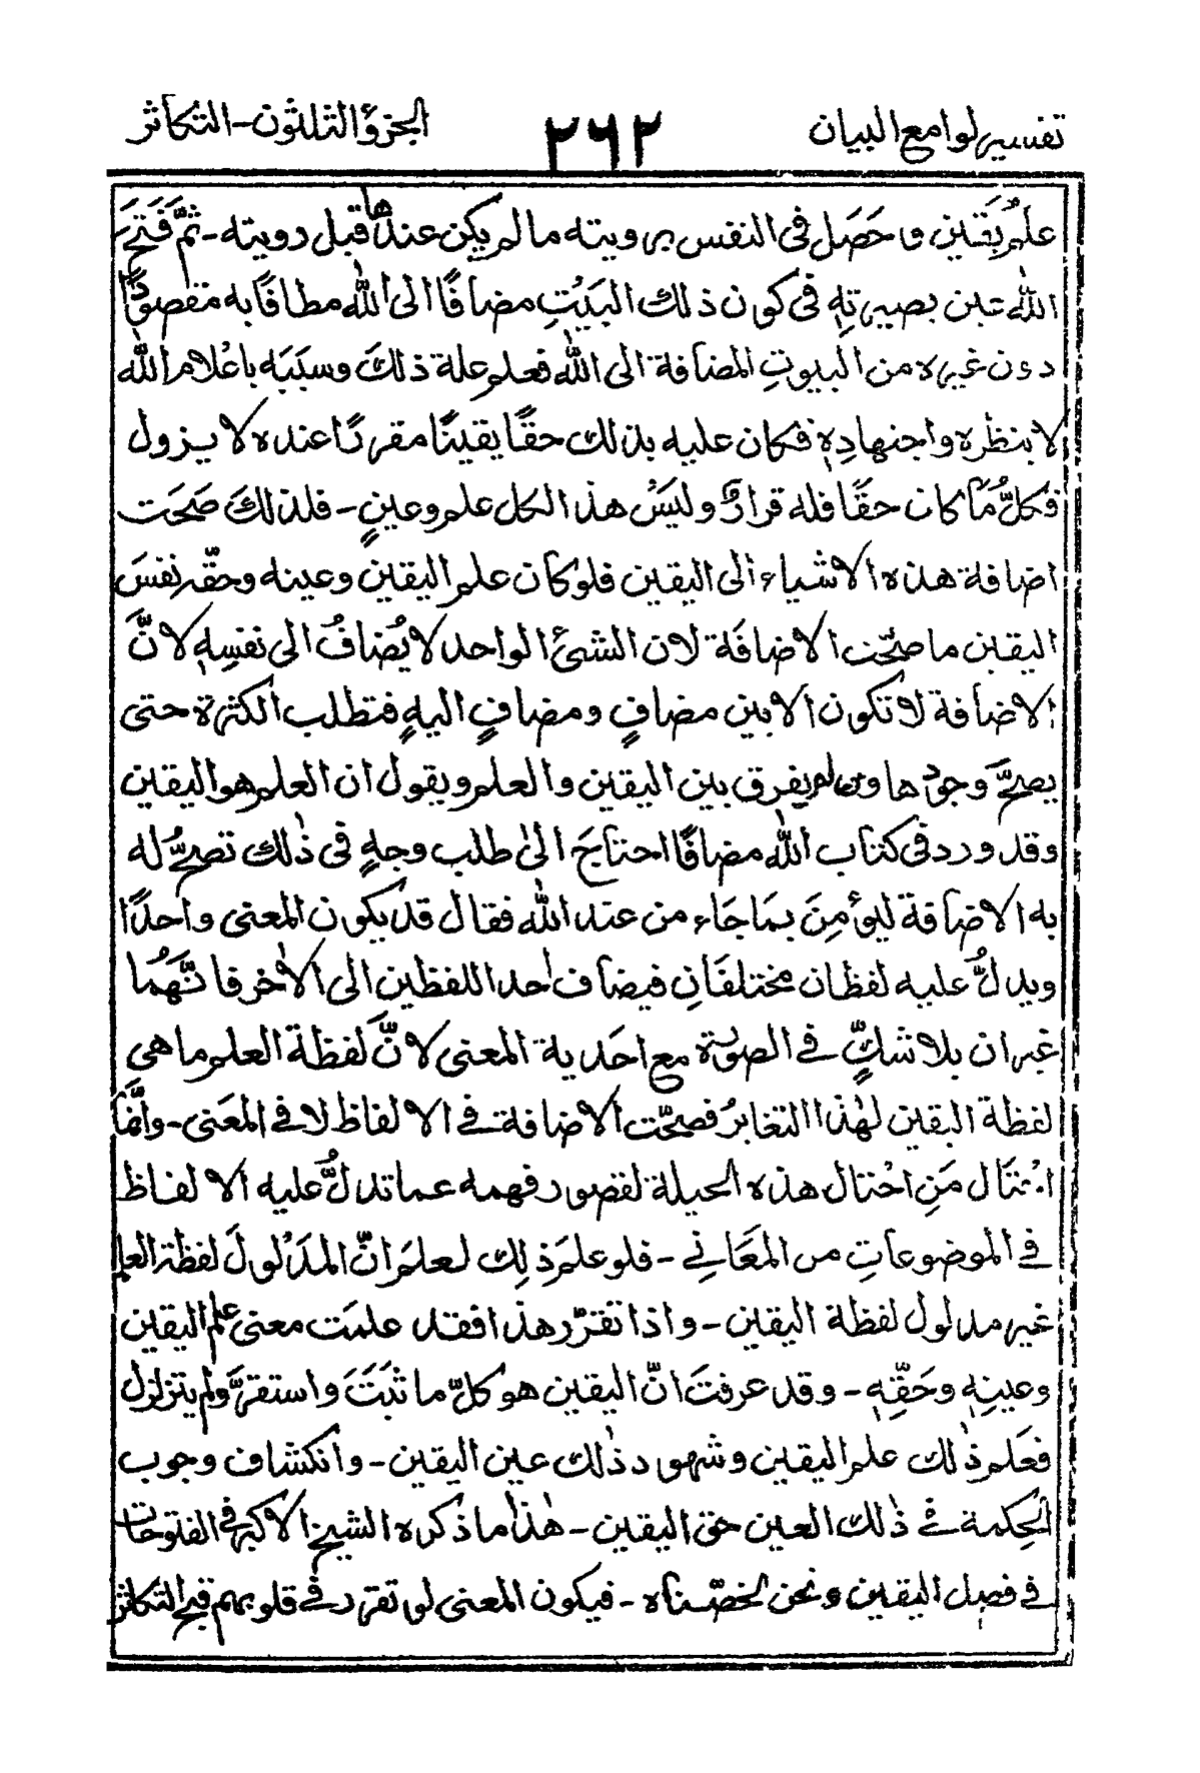 تفسير لوامع البيان
٢٦٢
الجزؤ الثلثون - التكاثر
علمُ يَقين وحَصَل فى النفس برويته ما لم يكن عندها قبل رويته - ثمَّ فَتَحَ
اللّٰه عين بصيرتِهٖ فى كون ذلك البَيْتِ مضافًا الى اللّٰه مطافًا به مقصودًا
دون غيره من البيوتِ المضافة الى اللّٰه فعلم علة ذلكَ وسبَبَه باعْلام اللّٰه
لا بنظره واجتهادِهٖ فكان عليه بذلك حقًّا يقينًا مقررًا عنده لا يزول
فكلُّ مَا كان حقًا فله قرارٌ وليسَ هذا الكل علم وعينٍ - فلذلكَ صَحَت
اضافة هذه الاشياء الى اليقين فلو كان علم اليقين وعينه وحقّه نفسَ
اليقين ما صحّت الاضافَة لان الشئ الواحد لا يُضافُ الى نفسِهٖ لانَّ
الاضافة لا تكون الا بين مضافٍ ومضافٍ اليهِ فتطلب الكثرة حتى
يصحَّ وجودها ومن لم يفرق بين اليقين والعلم ويقول ان العلم هو اليقين
وقد ورد فى كتاب اللّٰه مضافًا احتاجَ الىٰ طلب وجهٍ فى ذٰلك تصحُّ له
به الاضافة ليؤمِنَ بمَا جَاء من عند اللّٰه فقال قد يكون المعنى واحدًا
ويدلُّ عليه لفظان مختلفَانِ فيضاف احد اللفظين الى الاٰخر فانَّهُما
غيران بلا شكٍّ فى الصورة مع احَدية المعنى لانَّ لفظة العلم ما هى
لفظة اليقين لهٰذا التغايرُ فصحّت الاضافة فى الالفاظ لا فى المعَنى - وانَّما
احْتَال مَنِ احْتال هذه الحيلة لقصور فهمه عما تدلُّ عليه الالفاظ
فى الموضوعاتِ من المعَاني - فلو علمَ ذلِك لعلمَ انّ المدَلُولَ لفظة العلم
غير مدلول لفظة اليقين - واذا تقرّر هذا فقد علمَت معنى علم اليقين
وعينِهٖ وحَقِّهٖ - وقد عرفتَ انّ اليقين هو كلّ ما ثبَتَ واستقرَّ ولم يتزلزل
فعَلم ذٰلك علم اليقين وشهود ذٰلك عين اليقين - وانكشاف وجوب
الحِكمة فى ذٰلك العين حق اليقين - هٰذا ما ذكره الشيخ الاكبر فى الفتوحات
فى فصل اليقين ونحن لخصّناه - فيكون المعنى لو تقرر فى قلوبهم قبح التكاثر